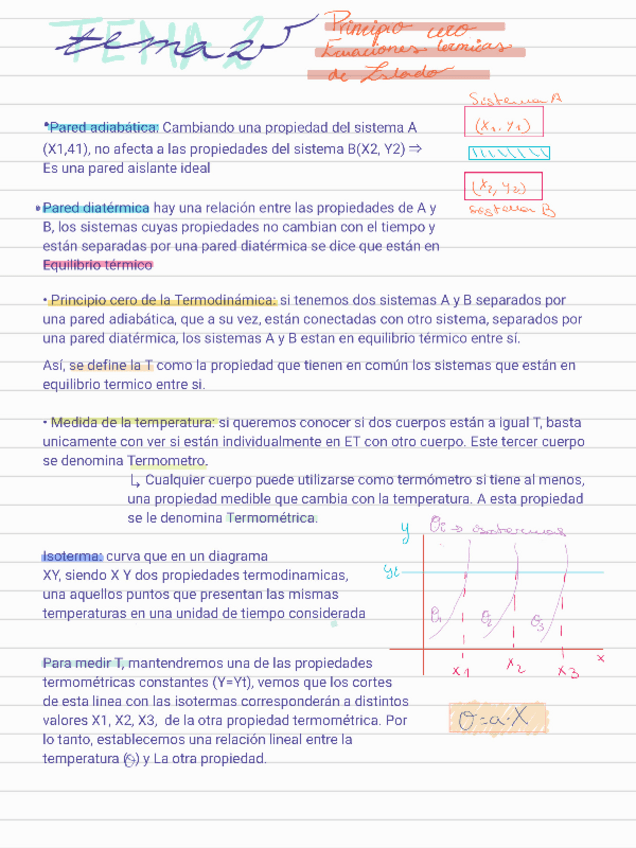 TEMA 2
tema 2
Principio cero
Ecuaciones térmicas
de Estado
Sistema A
(X1, Y1)
(X2, Y2)
Sistema B
•Pared adiabática: Cambiando una propiedad del sistema A
(X1,41), no afecta a las propiedades del sistema B(X2, Y2) ⇒
Es una pared aislante ideal
•Pared diatérmica hay una relación entre las propiedades de A y
B, los sistemas cuyas propiedades no cambian con el tiempo y
están separadas por una pared diatérmica se dice que están en
Equilibrio térmico
• Principio cero de la Termodinámica: si tenemos dos sistemas A y B separados por
una pared adiabática, que a su vez, están conectadas con otro sistema, separados por
una pared diatérmica, los sistemas A y B estan en equilibrio térmico entre sí.
Así, se define la T como la propiedad que tienen en común los sistemas que están en
equilibrio termico entre si.
• Medida de la temperatura: si queremos conocer si dos cuerpos están a igual T, basta
unicamente con ver si están individualmente en ET con otro cuerpo. Este tercer cuerpo
se denomina Termometro.
↳ Cualquier cuerpo puede utilizarse como termómetro si tiene al menos,
una propiedad medible que cambia con la temperatura. A esta propiedad
se le denomina Termométrica.
Isoterma: curva que en un diagrama
XY, siendo X Y dos propiedades termodinamicas,
una aquellos puntos que presentan las mismas
temperaturas en una unidad de tiempo considerada
y
θi → isotermas
yt
θ1 θ2 θ3
x1 x2 x3 x
Para medir T, mantendremos una de las propiedades
termométricas constantes (Y=Yt), vemos que los cortes
de esta linea con las isotermas corresponderán a distintos
valores X1, X2, X3, de la otra propiedad termométrica. Por
lo tanto, establecemos una relación lineal entre la
temperatura (θ) y La otra propiedad.
θ=a·X